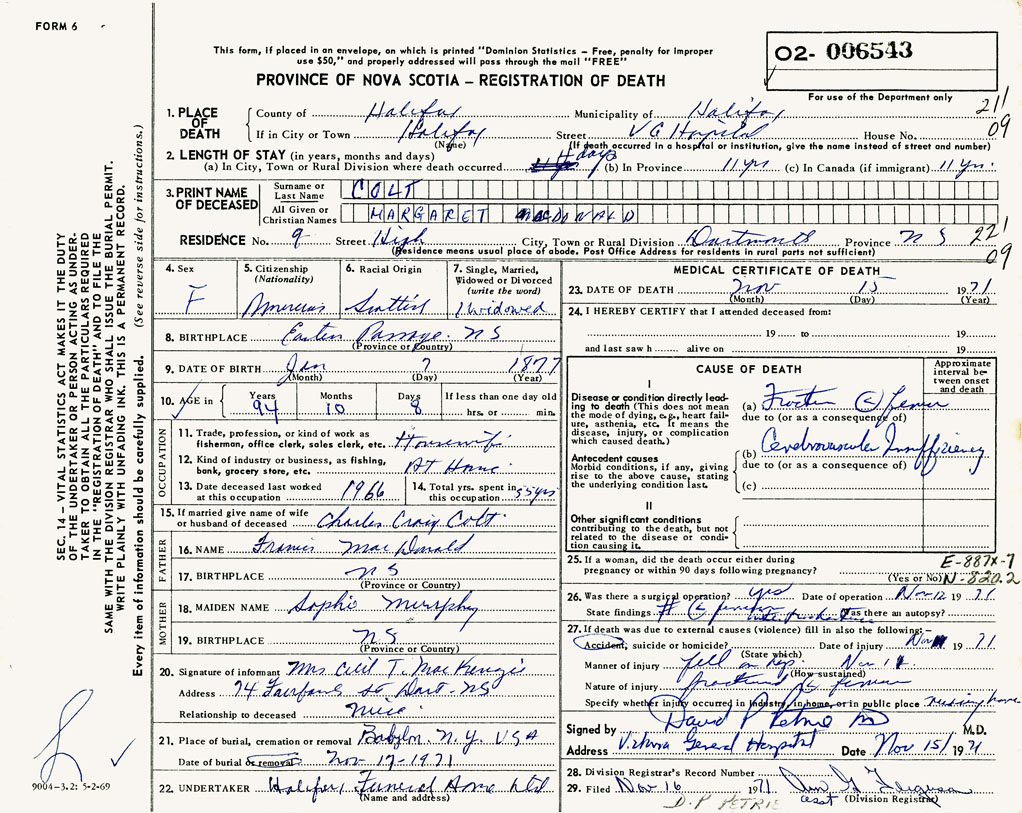 FORM 6
This form, if placed in an envelope, on which is printed "Dominion Statistics – Free, penalty for improper
use $50," and properly addressed will pass through the mail "FREE"
PROVINCE OF NOVA SCOTIA – REGISTRATION OF DEATH
O2- 006543
For use of the Department only
211
09
1. PLACE OF DEATH
County of Halifax Municipality of Halifax
If in City or Town Halifax Street V G Hospital House No.
(Name) (If death occurred in a hospital or institution, give the name instead of street and number)
2. LENGTH OF STAY (in years, months and days)
(a) In City, Town or Rural Division where death occurred 4 days (b) In Province 11 yrs (c) In Canada (if immigrant) 11 yrs.
3. PRINT NAME OF DECEASED
Surname or Last Name COLT
All Given or Christian Names MARGARET MACDONALD
RESIDENCE No. 9 Street High City, Town or Rural Division Dartmouth Province N S
(Residence means usual place of abode. Post Office Address for residents in rural parts not sufficient)
221
09
4. Sex F
5. Citizenship (Nationality) American
6. Racial Origin Scottish
7. Single, Married, Widowed or Divorced (write the word) Widowed
8. BIRTHPLACE Eastern Passage. NS
(Province or Country)
9. DATE OF BIRTH Jan 7 1877
(Month) (Day) (Year)
10. AGE in Years 94 Months 10 Days 8 If less than one day old hrs. or min.
OCCUPATION
11. Trade, profession, or kind of work as fisherman, office clerk, sales clerk, etc. Housewife
12. Kind of industry or business, as fishing, bank, grocery store, etc. At Home
13. Date deceased last worked at this occupation 1966
14. Total yrs. spent in this occupation 55 yrs
15. If married give name of wife or husband of deceased Charles Craig Colt
FATHER
16. NAME Francis MacDonald
17. BIRTHPLACE NS
(Province or Country)
MOTHER
18. MAIDEN NAME Sophie Murphy
19. BIRTHPLACE NS
(Province or Country)
20. Signature of informant Mrs Cecil T. MacKenzie
Address 74 Fairbanks St Dart. NS
Relationship to deceased niece
21. Place of burial, cremation or removal Babylon. N.Y. USA
Date of burial or removal Nov-17-1971
22. UNDERTAKER Halifax Funeral Home Ltd
(Name and address)
MEDICAL CERTIFICATE OF DEATH
23. DATE OF DEATH Nov 15 1971
(Month) (Day) (Year)
24. I HEREBY CERTIFY that I attended deceased from:
19 to 19
and last saw h alive on 19
CAUSE OF DEATH
Approximate interval between onset and death
I
Disease or condition directly leading to death (This does not mean the mode of dying, e.g., heart failure, asthenia, etc. It means the disease, injury, or complication which caused death.)
(a) (L) femur
due to (or as a consequence of)
Antecedent causes
Morbid conditions, if any, giving rise to the above cause, stating the underlying condition last.
(b) Cerebrovascular Insufficiency
due to (or as a consequence of)
(c)
II
Other significant conditions contributing to the death, but not related to the disease or condition causing it.
25. If a woman, did the death occur either during pregnancy or within 90 days following pregnancy?
(Yes or No)
E-887X-7
N-820.2
26. Was there a surgical operation? yes Date of operation Nov 12 19 71
State findings # (L) femur Was there an autopsy?
27. If death was due to external causes (violence) fill in also the following:–
Accident, suicide or homicide? Date of injury Nov 11 71
(State which)
Manner of injury fell on hip Nov 11
(How sustained)
Nature of injury fractured (L) femur
Specify whether injury occurred in industry, in home, or in public place nursing home
Signed by David P Petrie M.D.
Address Victoria General Hospital Date Nov 15/ 1971
28. Division Registrar's Record Number
29. Filed Nov 16 1971 Ferguson
asst (Division Registrar)
D.P PETRIE
SEC. 14 – VITAL STATISTICS ACT MAKES IT THE DUTY
OF THE UNDERTAKER OR PERSON ACTING AS UNDERTAKER
TO OBTAIN ALL THE PARTICULARS REQUIRED
IN THE "REGISTRATION OF DEATH" AND TO FILE THE
SAME WITH THE DIVISION REGISTRAR WHO SHALL ISSUE THE BURIAL PERMIT.
WRITE PLAINLY WITH UNFADING INK. THIS IS A PERMANENT RECORD.
Every item of information should be carefully supplied. (See reverse side for instructions.)
9004-3.2: 5-2-69